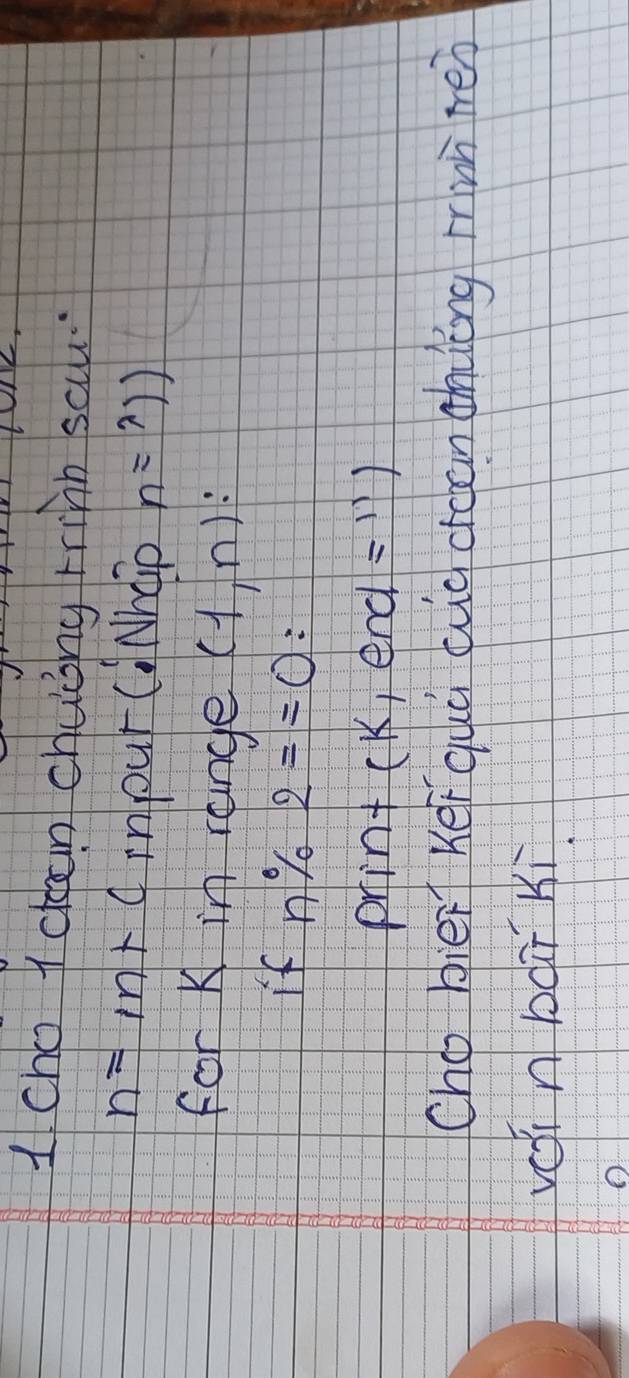 1. Cho 1 đoạn chương trình sau:
n = int (input ('Nhập n = '))
for K in range (1, n):
if n % 2 == 0:
print (K, end = '')
Cho biết kết quả của đoạn chương trình trên
với n bất kì.